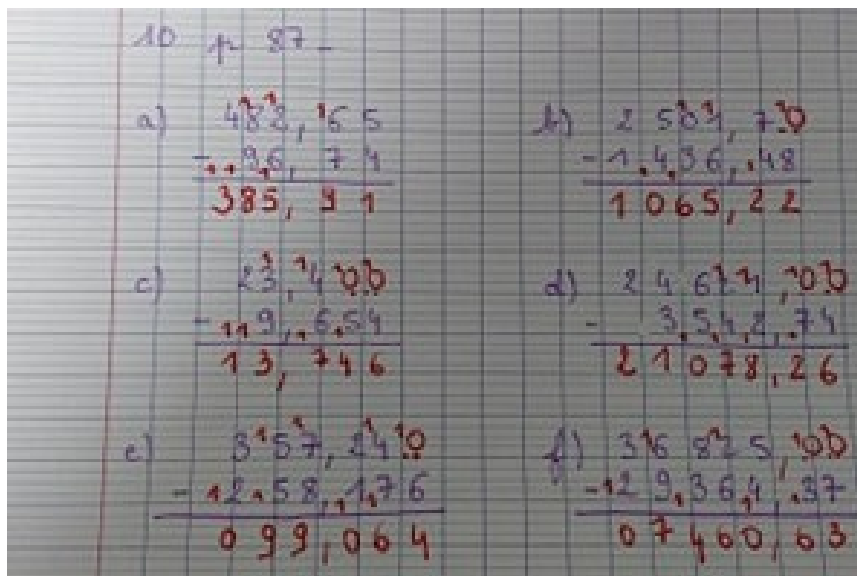 10 p 87
a) 482,65
- 96,74
385,91
b) 2501,70
- 1436,48
1065,22
c) 23,400
- 9,654
13,746
d) 24621,00
- 3542,74
21078,26
e) 357,240
- 258,176
099,064
f) 36825,00
- 29364,37
07460,63